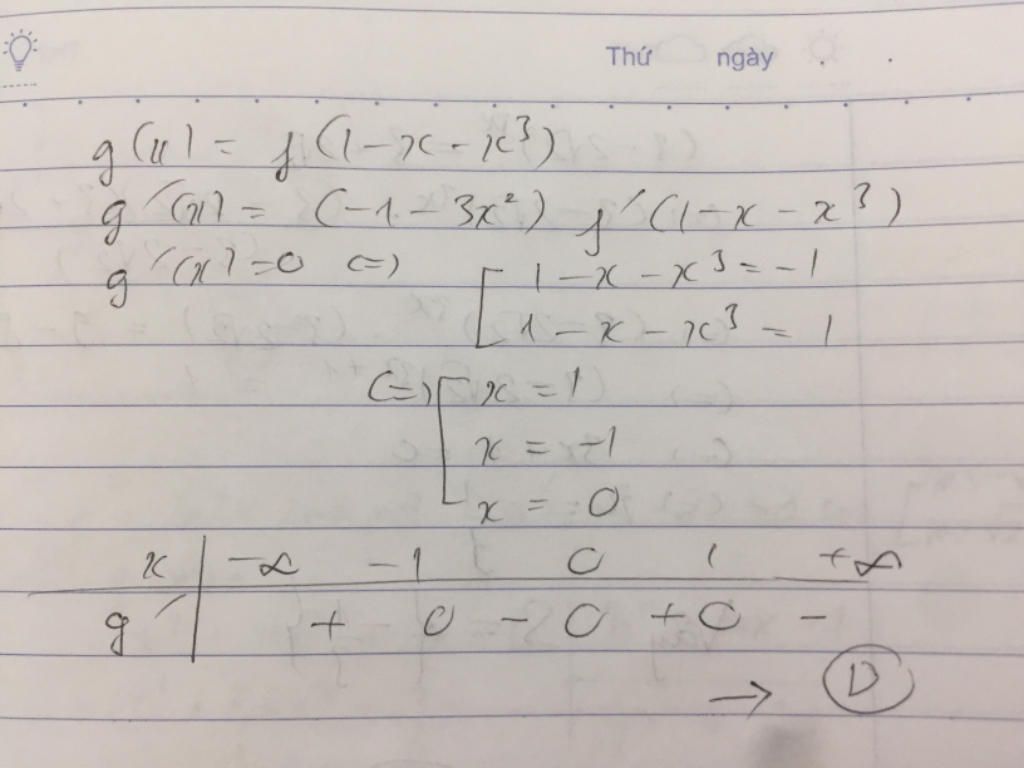 Thứ ngày
g(x) = f(1-x-x³)
g'(x) = (-1-3x²) f'(1-x-x³)
g'(x)=0 (=) [ 1-x-x³=-1
1-x-x³=1
(=) [ x=1
x=-1
x=0
x | -∞ -1 0 1 +∞
g' | + 0 - 0 + 0 -
→ D